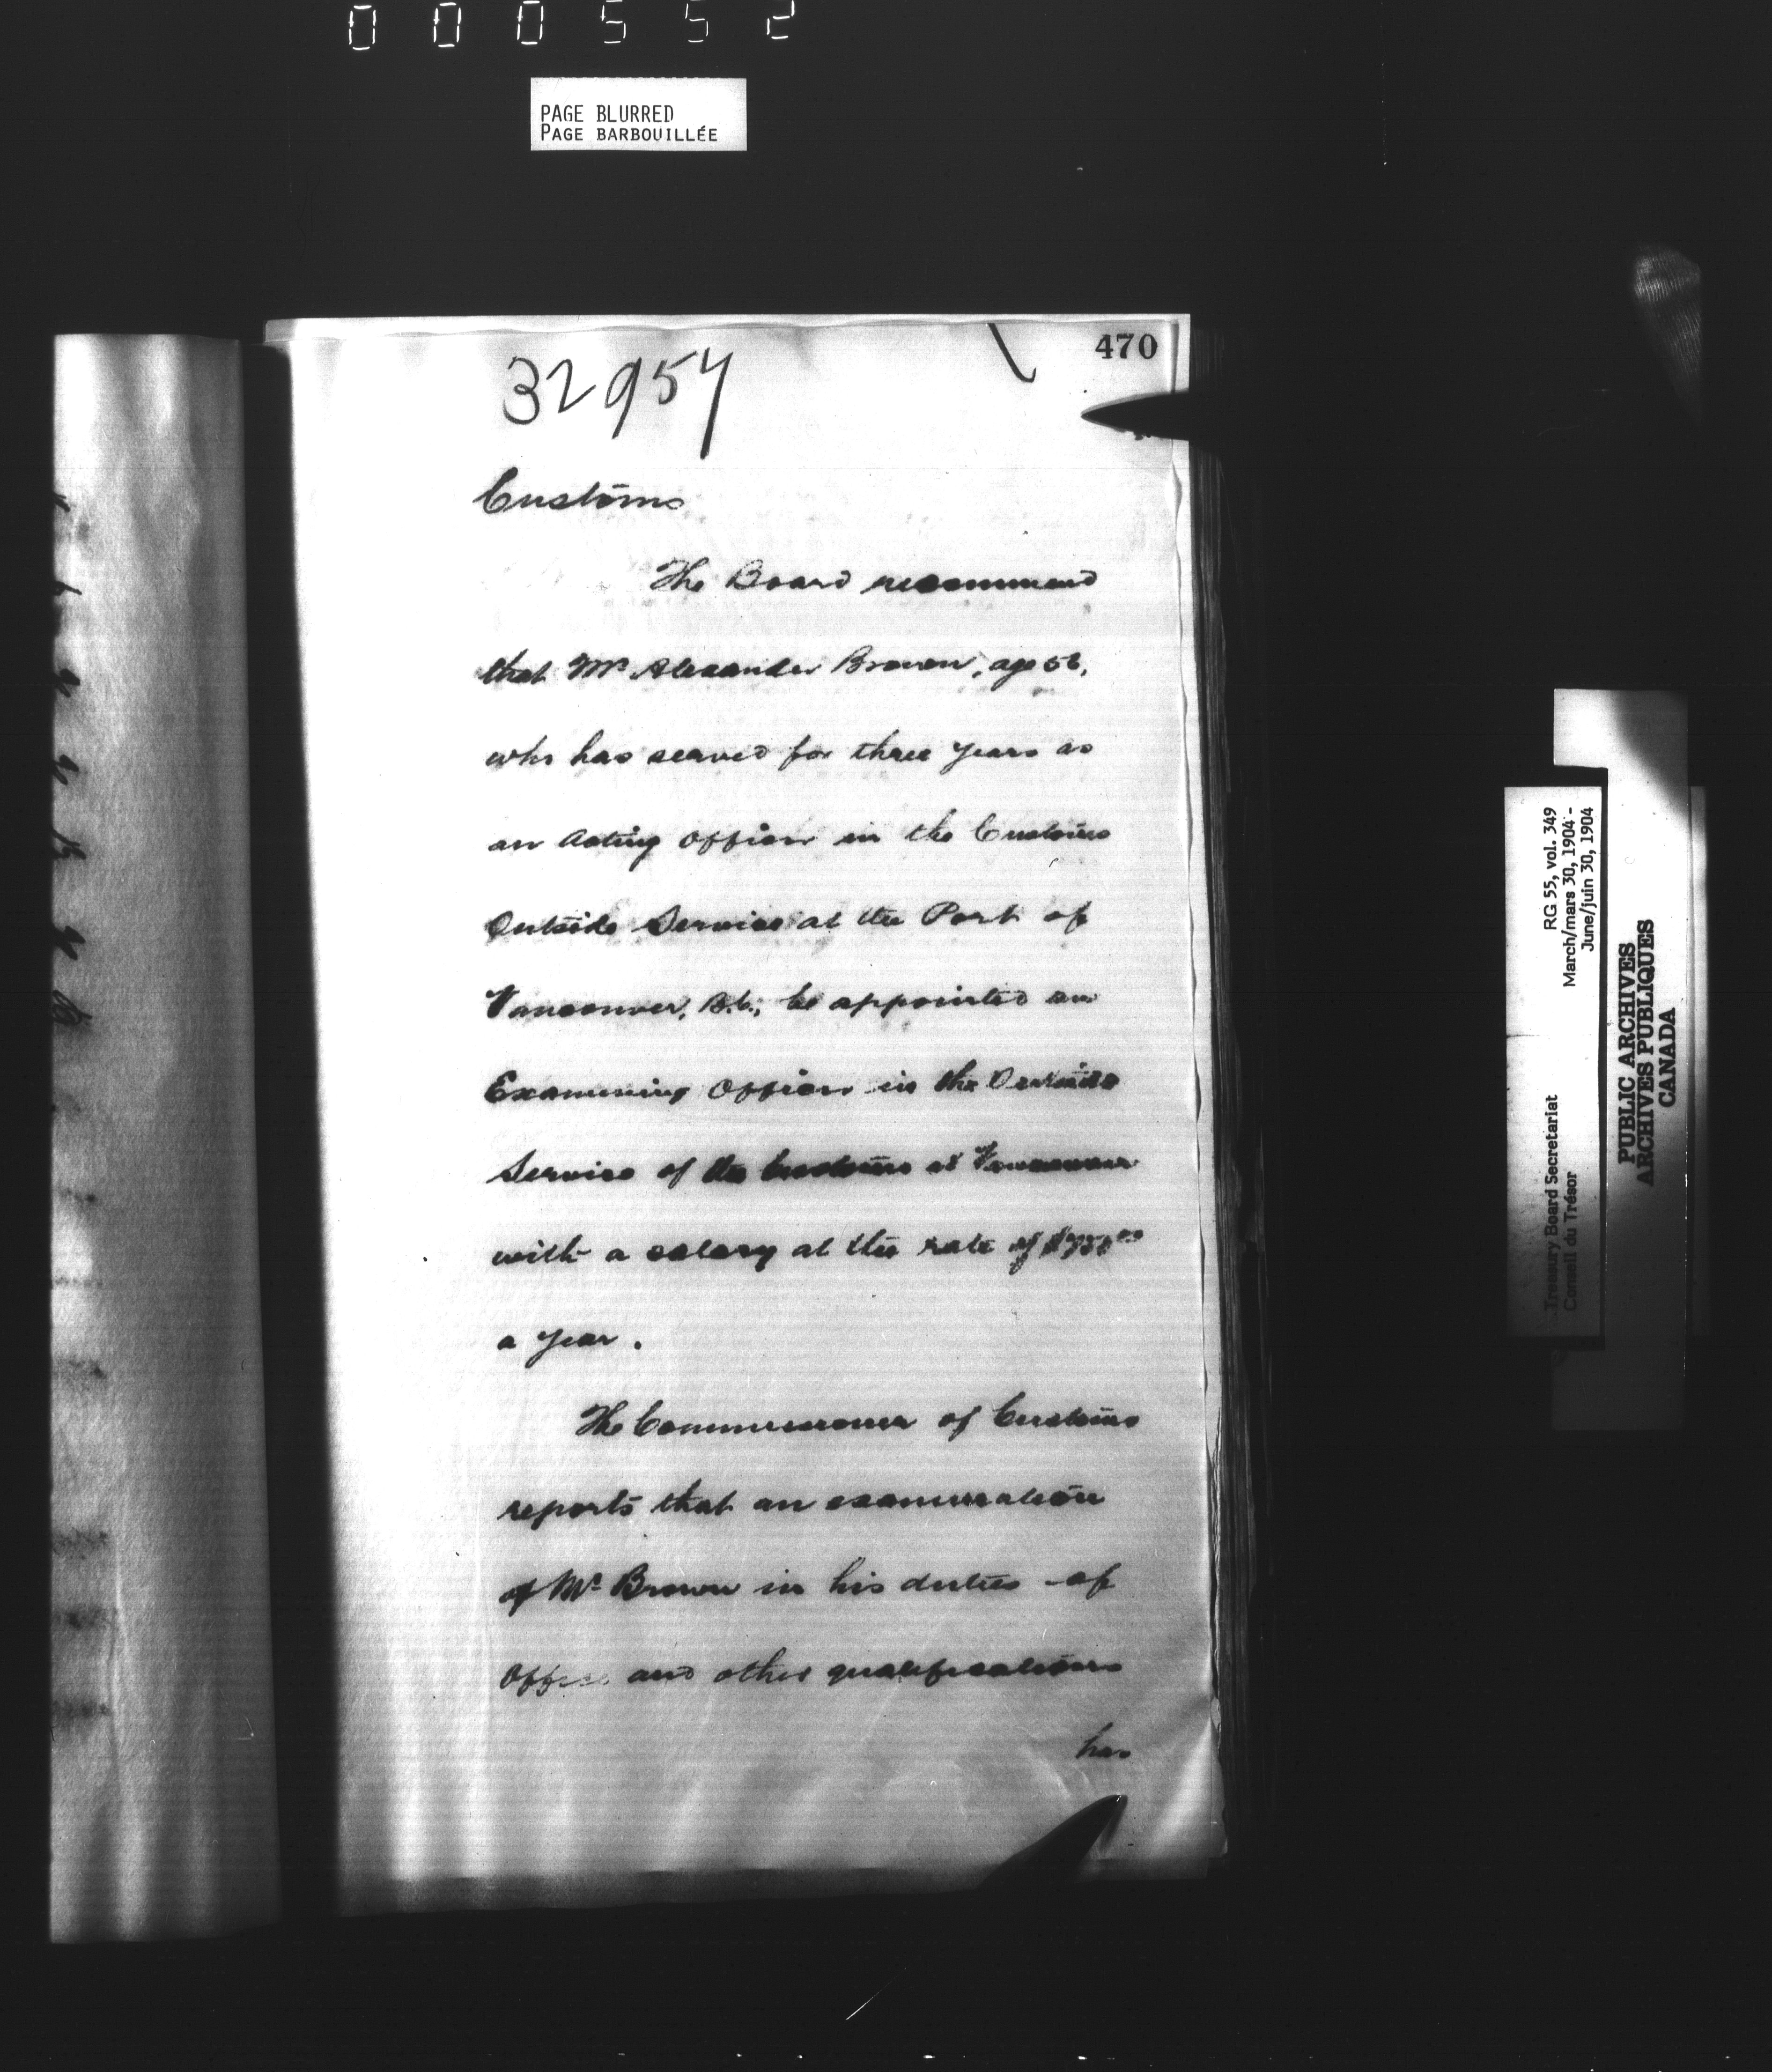 000552
PAGE BLURRED
PAGE BARBOUILLÉE
470
32957
Customs
The Board recommend
that Mr. Alexander Brown, age 56,
who has served for three years as
an Acting Officer in the Customs
Outside Service at the Port of
Vancouver, B.C., be appointed an
Examining Officer in the Outside
Service of the Customs at Vancouver
with a salary at the rate of
a year.
The Commissioner of Customs
reports that an examination
of Mr. Brown in his duties of
Office and other qualifications
has
RG 55, vol. 349
March/mars 30, 1904 -
June/juin 30, 1904
Treasury Board Secretariat
Conseil du Trésor
PUBLIC ARCHIVES
ARCHIVES PUBLIQUES
CANADA